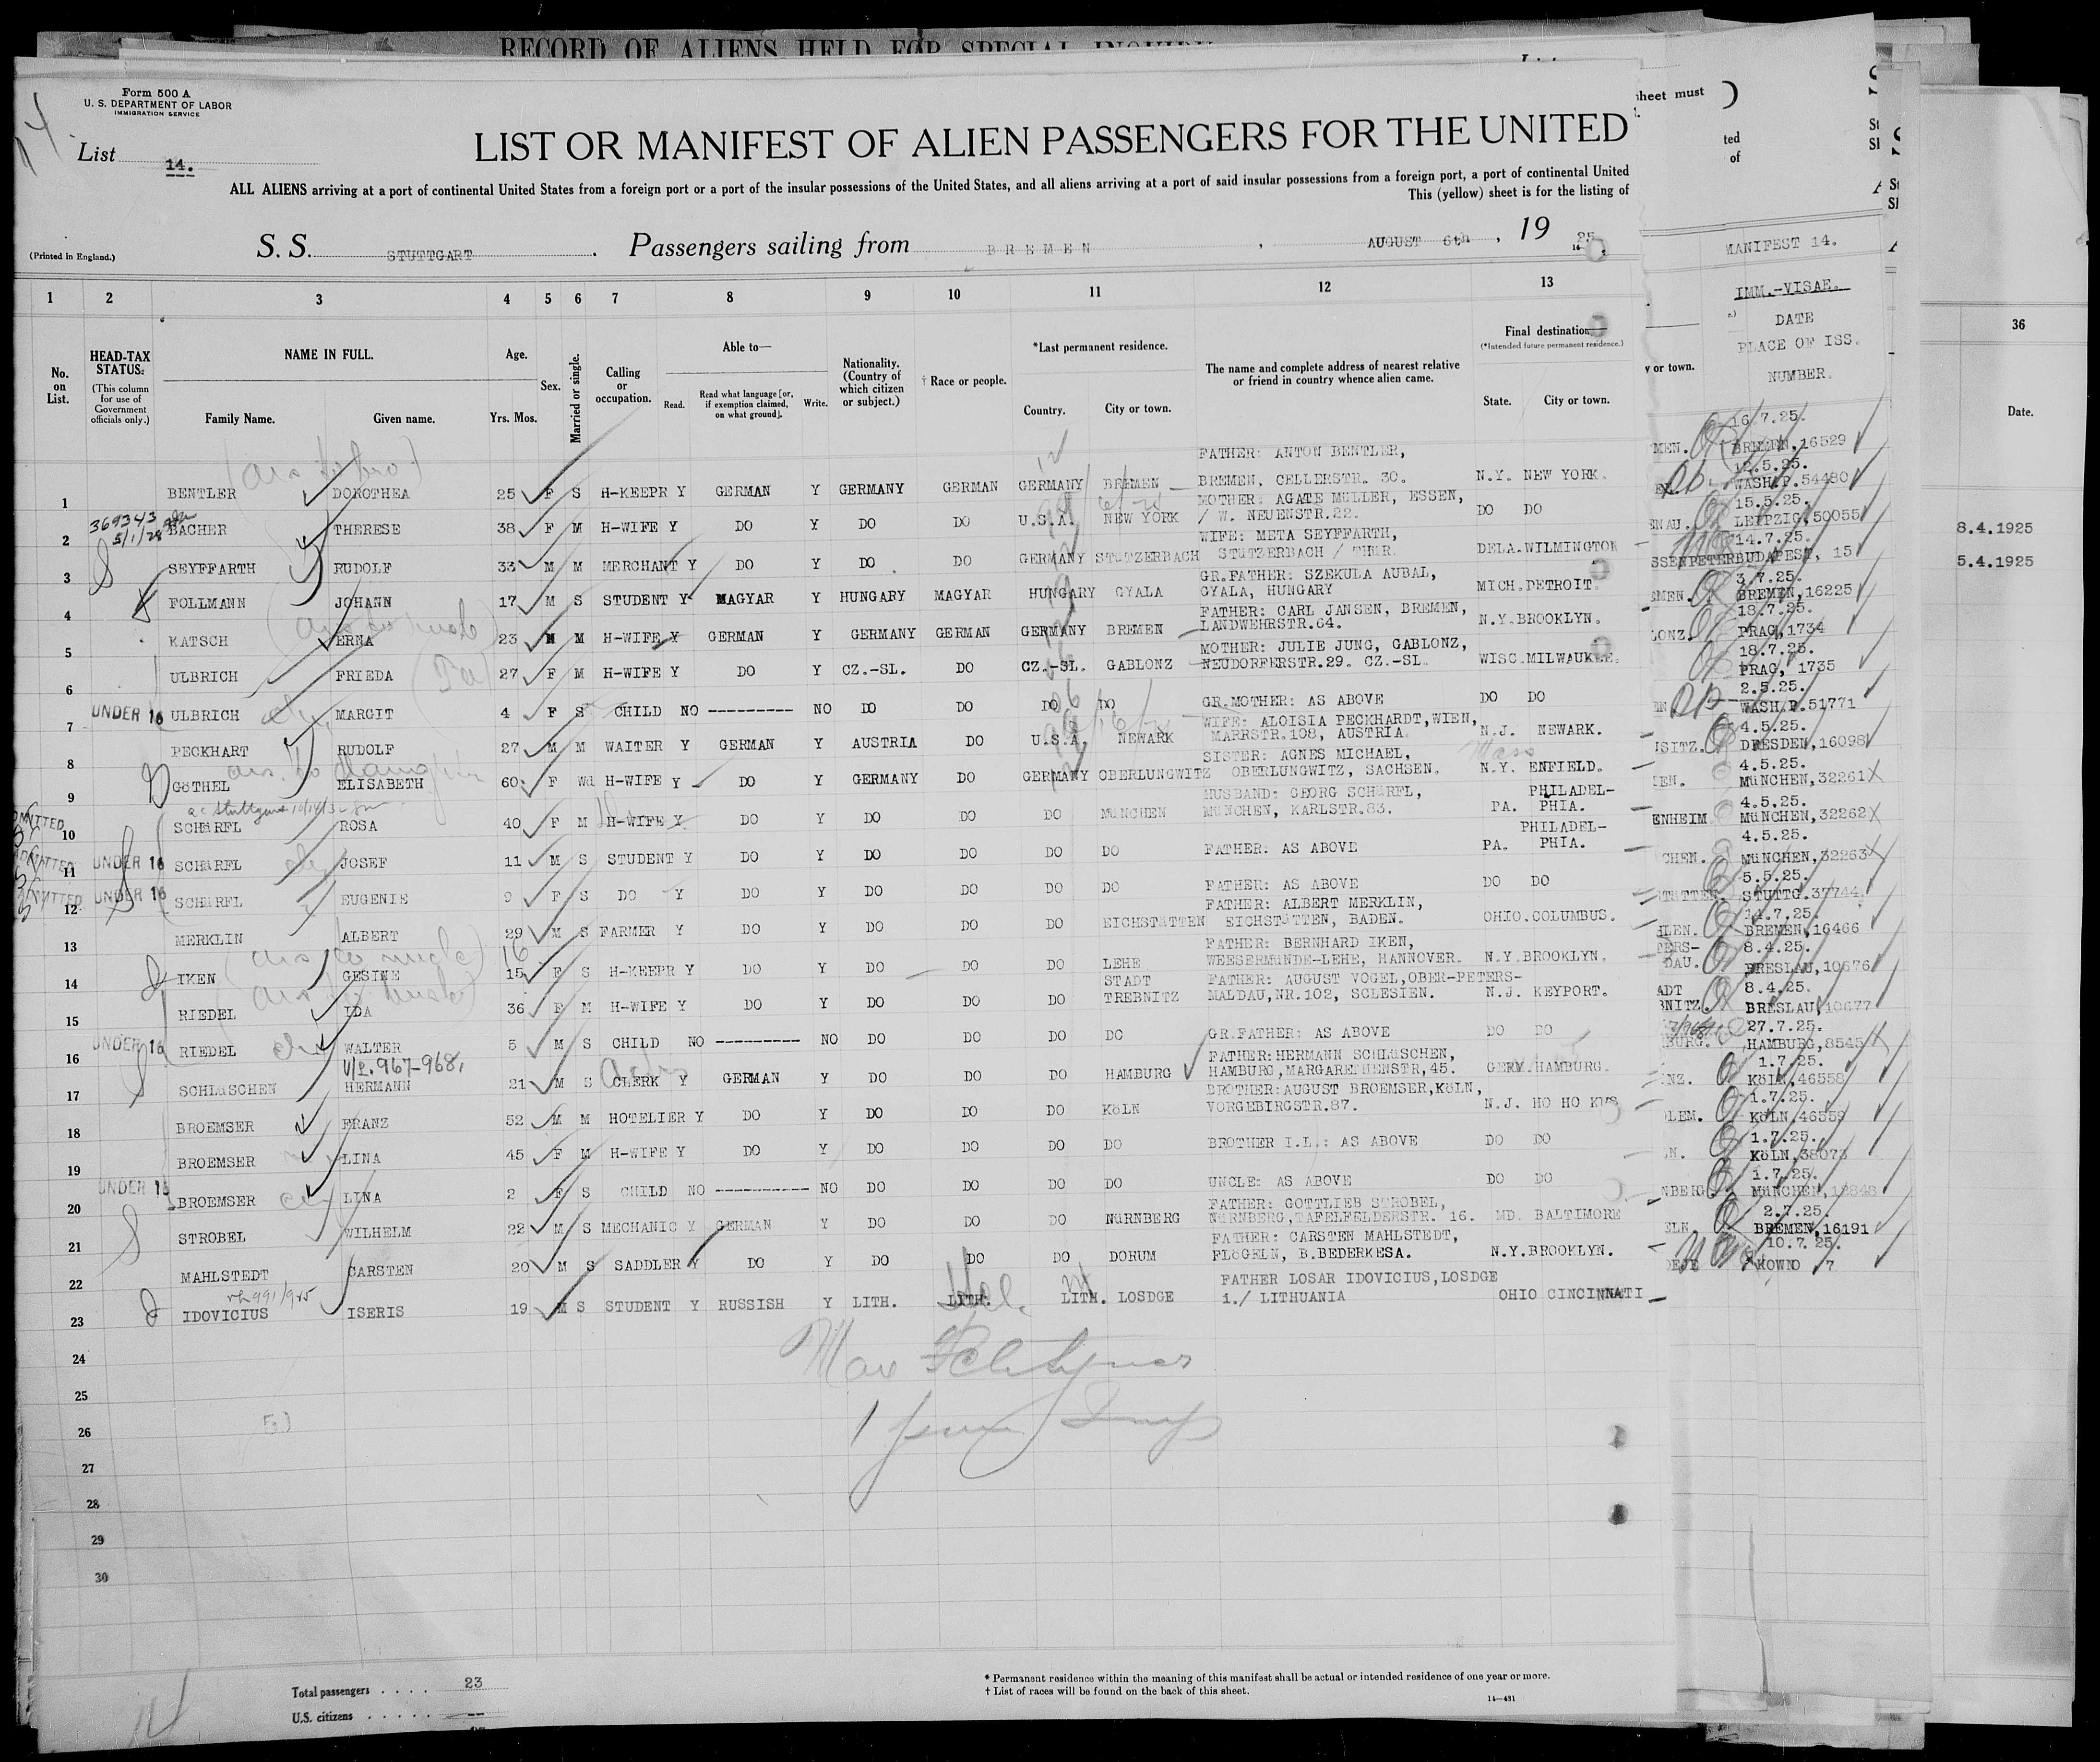 RECORD OF ALIENS HELD FOR SPECIAL INQUIRY
Form 500 A
U. S. DEPARTMENT OF LABOR
IMMIGRATION SERVICE
List 14.
LIST OR MANIFEST OF ALIEN PASSENGERS FOR THE UNITED
ALL ALIENS arriving at a port of continental United States from a foreign port or a port of the insular possessions of the United States, and all aliens arriving at a port of said insular possessions from a foreign port, a port of continental United
This (yellow) sheet is for the listing of
(Printed in England.)
S. S. STUTTGART. Passengers sailing from BREMEN, AUGUST 6th, 19 25
1 2 3 4 5 6 7 8 9 10 11 12 13
No. on List.
HEAD-TAX STATUS. (This column for use of Government officials only.)
NAME IN FULL.
Family Name. Given name.
Age. Yrs. Mos.
Sex.
Married or single.
Calling or occupation.
Able to—
Read. Read what language [or, if exemption claimed, on what ground]. Write.
Nationality. (Country of which citizen or subject.)
† Race or people.
*Last permanent residence.
Country. City or town.
The name and complete address of nearest relative or friend in country whence alien came.
Final destination
(*Intended future permanent residence.)
State. City or town.
1 BENTLER DOROTHEA 25 F S H-KEEPR Y GERMAN Y GERMANY GERMAN GERMANY BREMEN FATHER: ANTON BENTLER, BREMEN, CELLERSTR. 30. N.Y. NEW YORK.
369343
5/1/28
2 BACHER THERESE 38 F M H-WIFE Y DO Y DO DO U.S.A. NEW YORK MOTHER: AGATE MULLER, ESSEN, / W. NEUENSTR.22. DO DO
3 SEYFFARTH RUDOLF 33 M M MERCHANT Y DO Y DO DO GERMANY STUTZERBACH WIFE: META SEYFFARTH, STUTZERBACH / THUR. DELA.WILMINGTON
4 FOLLMANN JOHANN 17 M S STUDENT Y MAGYAR Y HUNGARY MAGYAR HUNGARY GYALA GR.FATHER: SZEKULA AUBAL, GYALA, HUNGARY MICH.DETROIT
5 KATSCH ERNA 23 M H-WIFE Y GERMAN Y GERMANY GERMAN GERMANY BREMEN FATHER: CARL JANSEN, BREMEN, LANDWEHRSTR.64. N.Y.BROOKLYN.
6 ULBRICH FRIEDA 27 F M H-WIFE Y DO Y CZ.-SL. DO CZ.-SL. GABLONZ MOTHER: JULIE JUNG, GABLONZ, NEUDORFERSTR.29. CZ.-SL. WISC.MILWAUKEE.
7 UNDER 16 ULBRICH MARGIT 4 F S CHILD NO ---------- NO DO DO DO DO GR.MOTHER: AS ABOVE DO DO
8 PECKHART RUDOLF 27 M M WAITER Y GERMAN Y AUSTRIA DO U.S.A. NEWARK WIFE: ALOISIA PECKHARDT,WIEN, MARRSTR.108, AUSTRIA. N.J. NEWARK.
9 GöTHEL ELISABETH 60 F Wd H-WIFE Y DO Y GERMANY DO GERMANY OBERLUNGWITZ SISTER: AGNES MICHAEL, OBERLUNGWITZ, SACHSEN. N.Y. ENFIELD. Mass
10 SCHäRFL ROSA 40 F M H-WIFE Y DO Y DO DO DO MüNCHEN HUSBAND: GEORG SCHäRFL, MüNCHEN, KARLSTR.83. PA. PHILADEL-PHIA.
11 UNDER 16 SCHäRFL JOSEF 11 M S STUDENT Y DO Y DO DO DO DO FATHER: AS ABOVE PA. PHILADEL-PHIA.
12 UNDER 16 SCHäRFL EUGENIE 9 F S DO Y DO Y DO DO DO DO FATHER: AS ABOVE DO DO
13 MERKLIN ALBERT 29 M S FARMER Y DO Y DO DO DO EICHSTäTTEN FATHER: ALBERT MERKLIN, EICHSTäTTEN, BADEN. OHIO.COLUMBUS.
14 IKEN GESINE 15 16 F S H-KEEPR Y DO Y DO DO DO LEHE FATHER: BERNHARD IKEN, WEESERMüNDE-LEHE, HANNOVER. N.Y.BROOKLYN.
15 RIEDEL IDA 36 F M H-WIFE Y DO Y DO DO DO STADT TREBNITZ FATHER: AUGUST VOGEL,OBER-PETERS-MALDAU,NR.102, SCLESIEN. N.J. KEYPORT.
16 UNDER 16 RIEDEL WALTER 5 M S CHILD NO ---------- NO DO DO DO DO GR.FATHER: AS ABOVE DO DO
17 SCHLäSCHEN HERMANN 21 M S CLERK Y GERMAN Y DO DO DO HAMBURG FATHER:HERMANN SCHLäSCHEN, HAMBURG,MARGARETHENSTR,45. GERM.HAMBURG.
18 BROEMSER FRANZ 52 M M HOTELIER Y DO Y DO DO DO KöLN BROTHER:AUGUST BROEMSER,KöLN, VORGEBIRGSTR.87. N.J. HO HO KUS
19 BROEMSER LINA 45 F M H-WIFE Y DO Y DO DO DO DO BROTHER I.L.: AS ABOVE DO DO
20 UNDER 16 BROEMSER LINA 2 F S CHILD NO ---------- NO DO DO DO DO UNCLE: AS ABOVE DO DO
21 STROBEL WILHELM 22 M S MECHANIC Y GERMAN Y DO DO DO NüRNBERG FATHER: GOTTLIEB STROBEL, NüRNBERG,TAFELFELDERSTR. 16. MD. BALTIMORE
22 MAHLSTEDT CARSTEN 20 M S SADDLER Y DO Y DO DO DO DORUM FATHER: CARSTEN MAHLSTEDT, FLöGELN, B.BEDERKESA. N.Y.BROOKLYN.
23 IDOVICIUS ISERIS 19 M S STUDENT Y RUSSISH Y LITH. LITH. LITH. LOSDGE FATHER LOSAR IDOVICIUS,LOSDGE i./ LITHUANIA OHIO CINCINNATI
24
25
26
27
28
29
30
Total passengers . . . . 23
U.S. citizens . . . . . --
* Permanent residence within the meaning of this manifest shall be actual or intended residence of one year or more.
† List of races will be found on the back of this sheet.
14—431
sheet must )
ted
of
MANIFEST 14.
IMM.-VISAE.
DATE
PLACE OF ISS.
NUMBER.
y or town.
16.7.25.
BREMEN,16529
12.5.25.
WASH.P.54480
15.5.25.
LEIPZIG,50055
14.7.25.
BUDAPEST, 15
3.7.25.
BREMEN,16225
18.7.25.
PRAG,1734
18.7.25.
PRAG, 1735
2.5.25.
WASH.P.51771
4.5.25.
DRESDEN,16098
4.5.25.
MüNCHEN,32261
4.5.25.
MüNCHEN,32262
4.5.25.
MüNCHEN,32263
5.5.25.
STUTTG.37744
14.7.25.
BREMEN,16466
8.4.25.
BRESLAU,10676
8.4.25.
BRESLAU,10677
27.7.25.
HAMBURG,8545
1.7.25.
KöLN,46558
1.7.25.
KöLN,46559
1.7.25.
KöLN,38073
1.7.25.
MüNCHEN,12848
2.7.25.
BREMEN,16191
10.7.25.
KOWNO 7
36
Date.
8.4.1925
5.4.1925